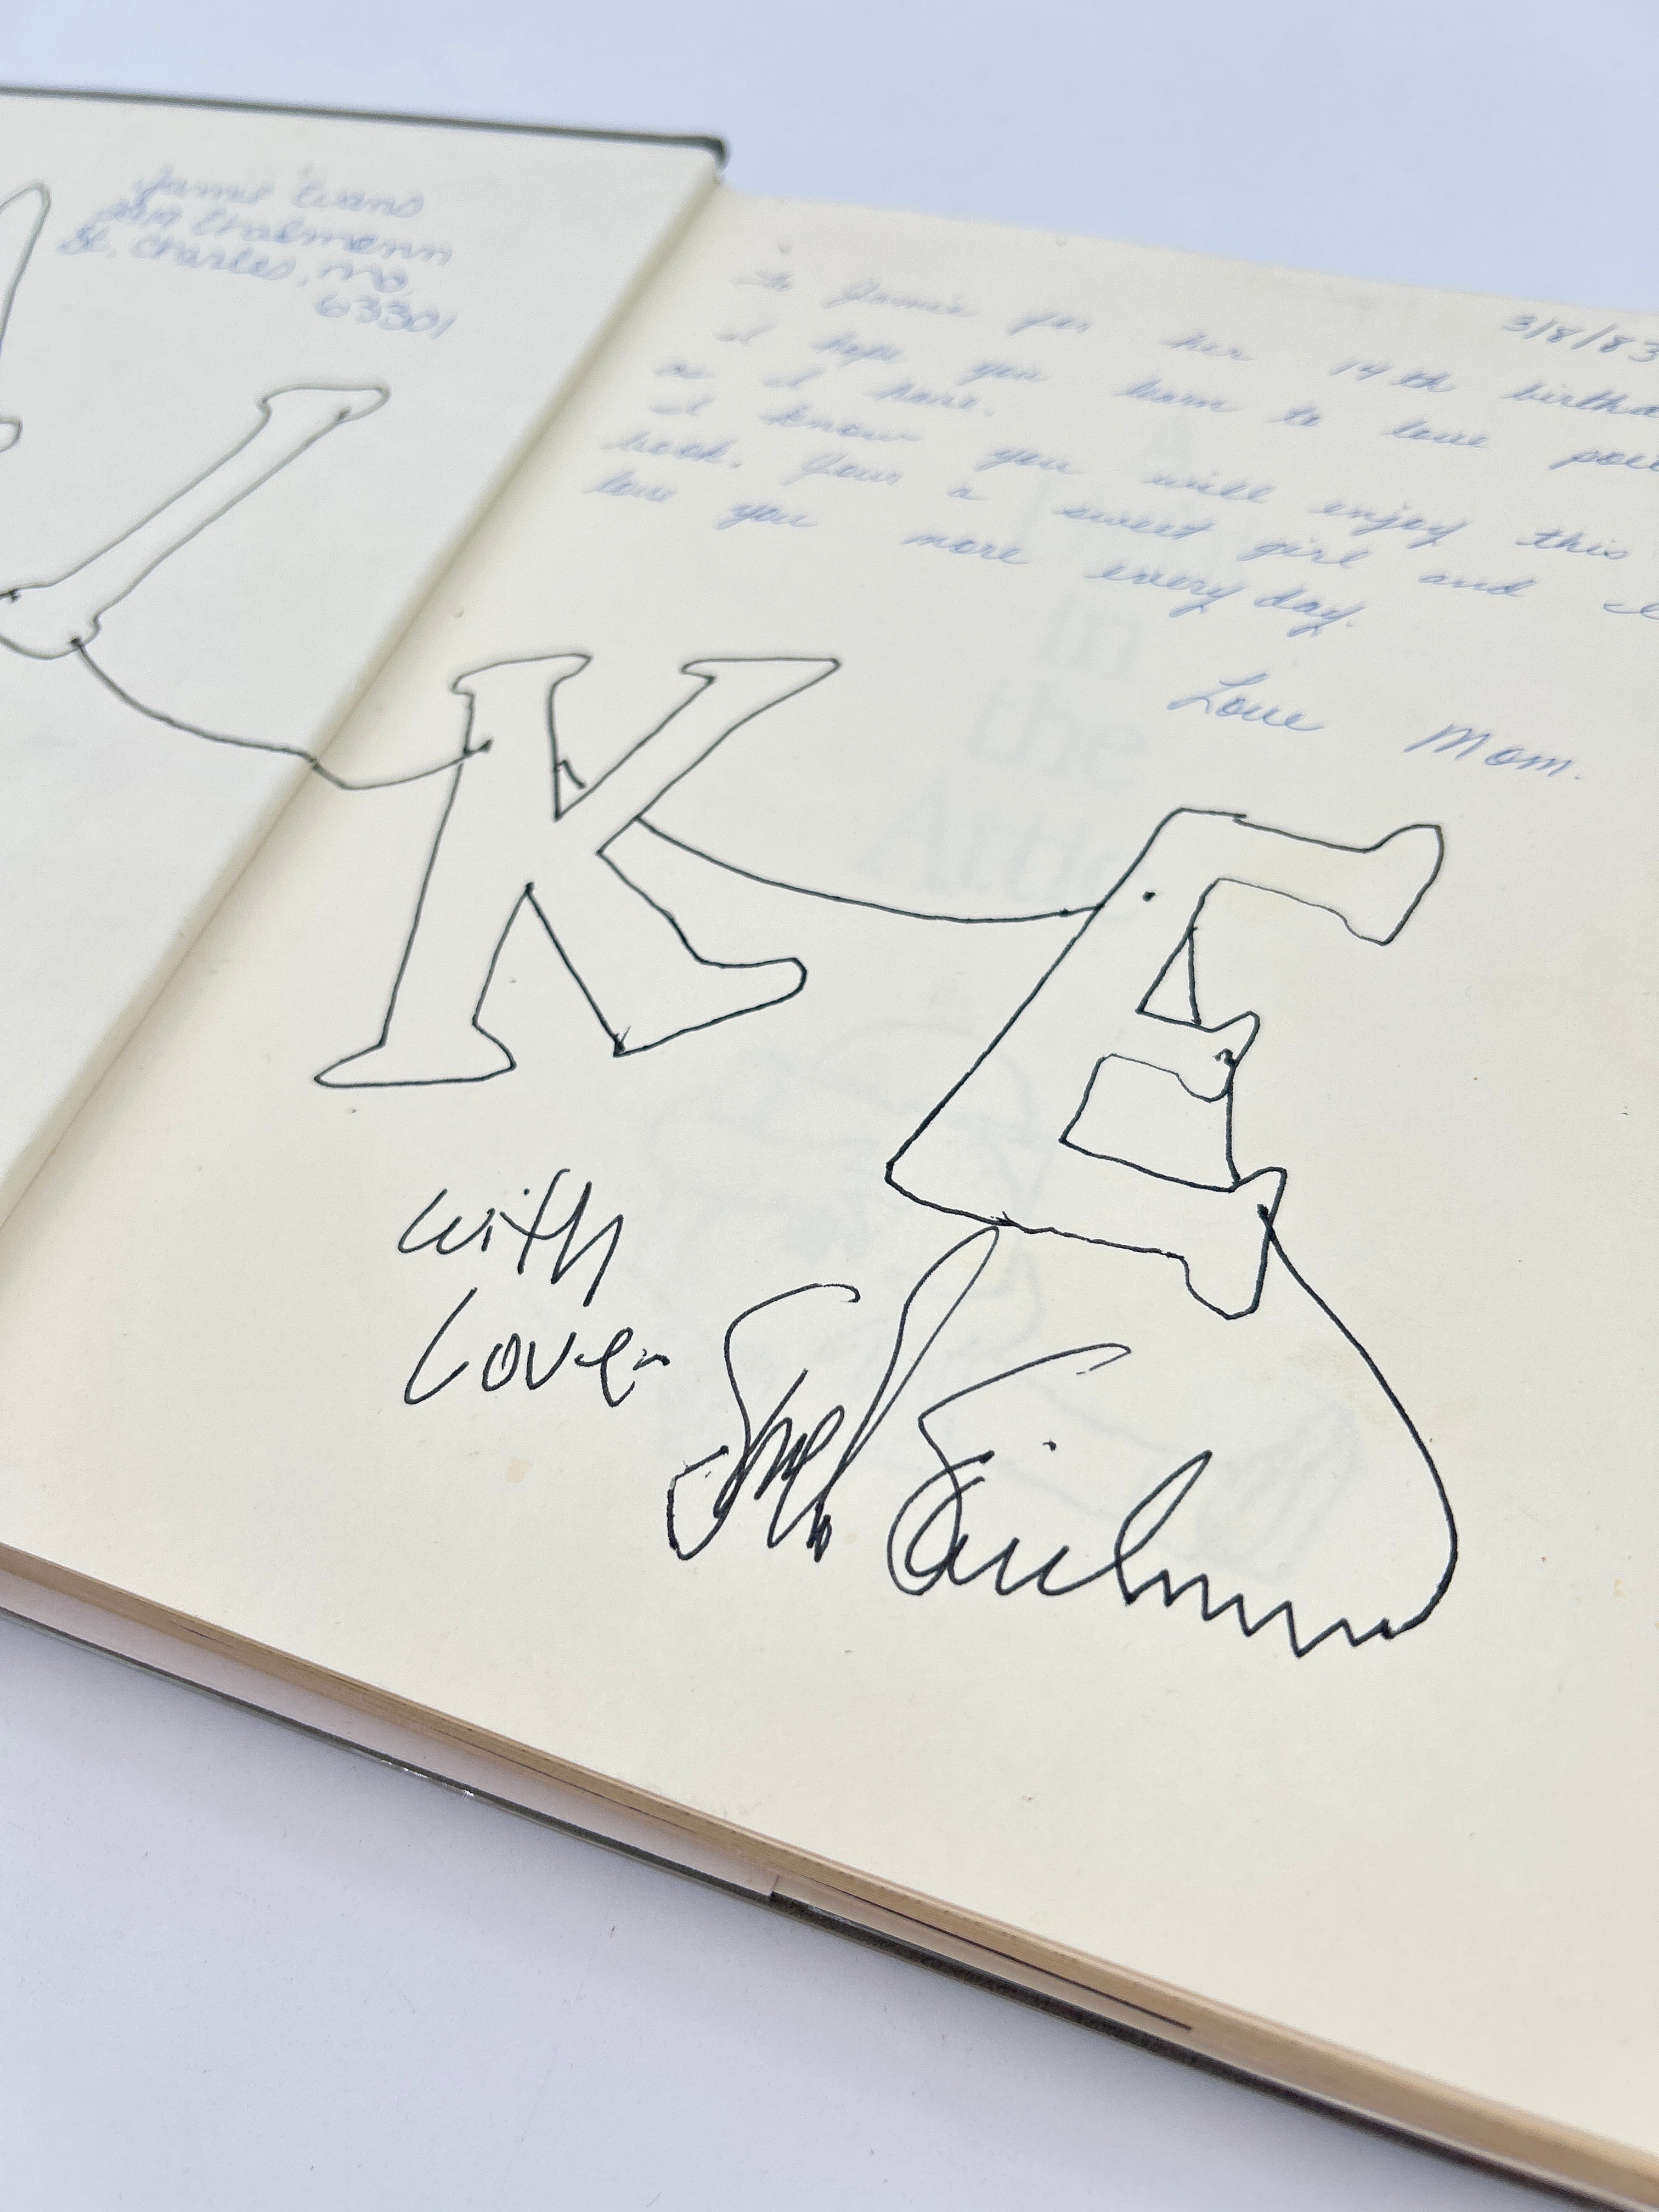 Jamie Evans
St. Charles, Mo.
63301
3/8/83
To Jamie for her 14th birthda
I hope you learn to love poe
as I have.
I know you will enjoy this
book. Your a sweet girl and I
love you more every day.
Love Mom.
in
the
Attic
I K E
with
Love-
Shel Silverstein